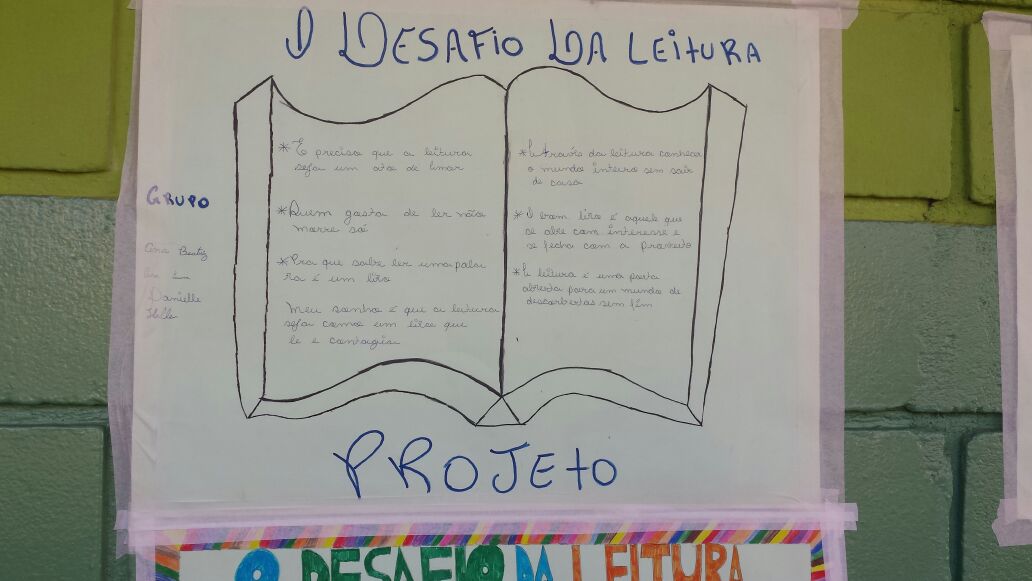 O DESAFIO DA LEITURA
* É preciso que a leitura
seja um ato de
* Quem gosta de ler não
morre só
* Pra que sabe ler uma pala
ra é um liro
Meu sonho é que a leitura
seja como um liro que
le e contagia
* A través da leitura conheça
o mundo inteiro sem sair
de casa
* O bom liro é aquele que
se abre com interesse e
se fecha com a proveito
* A leitura é uma porta
aberta para um mundo de
descorbertas sem fim
GRUPO
Ana Beatriz
Danielle
PROJETO
O DESAFIO DA LEITURA